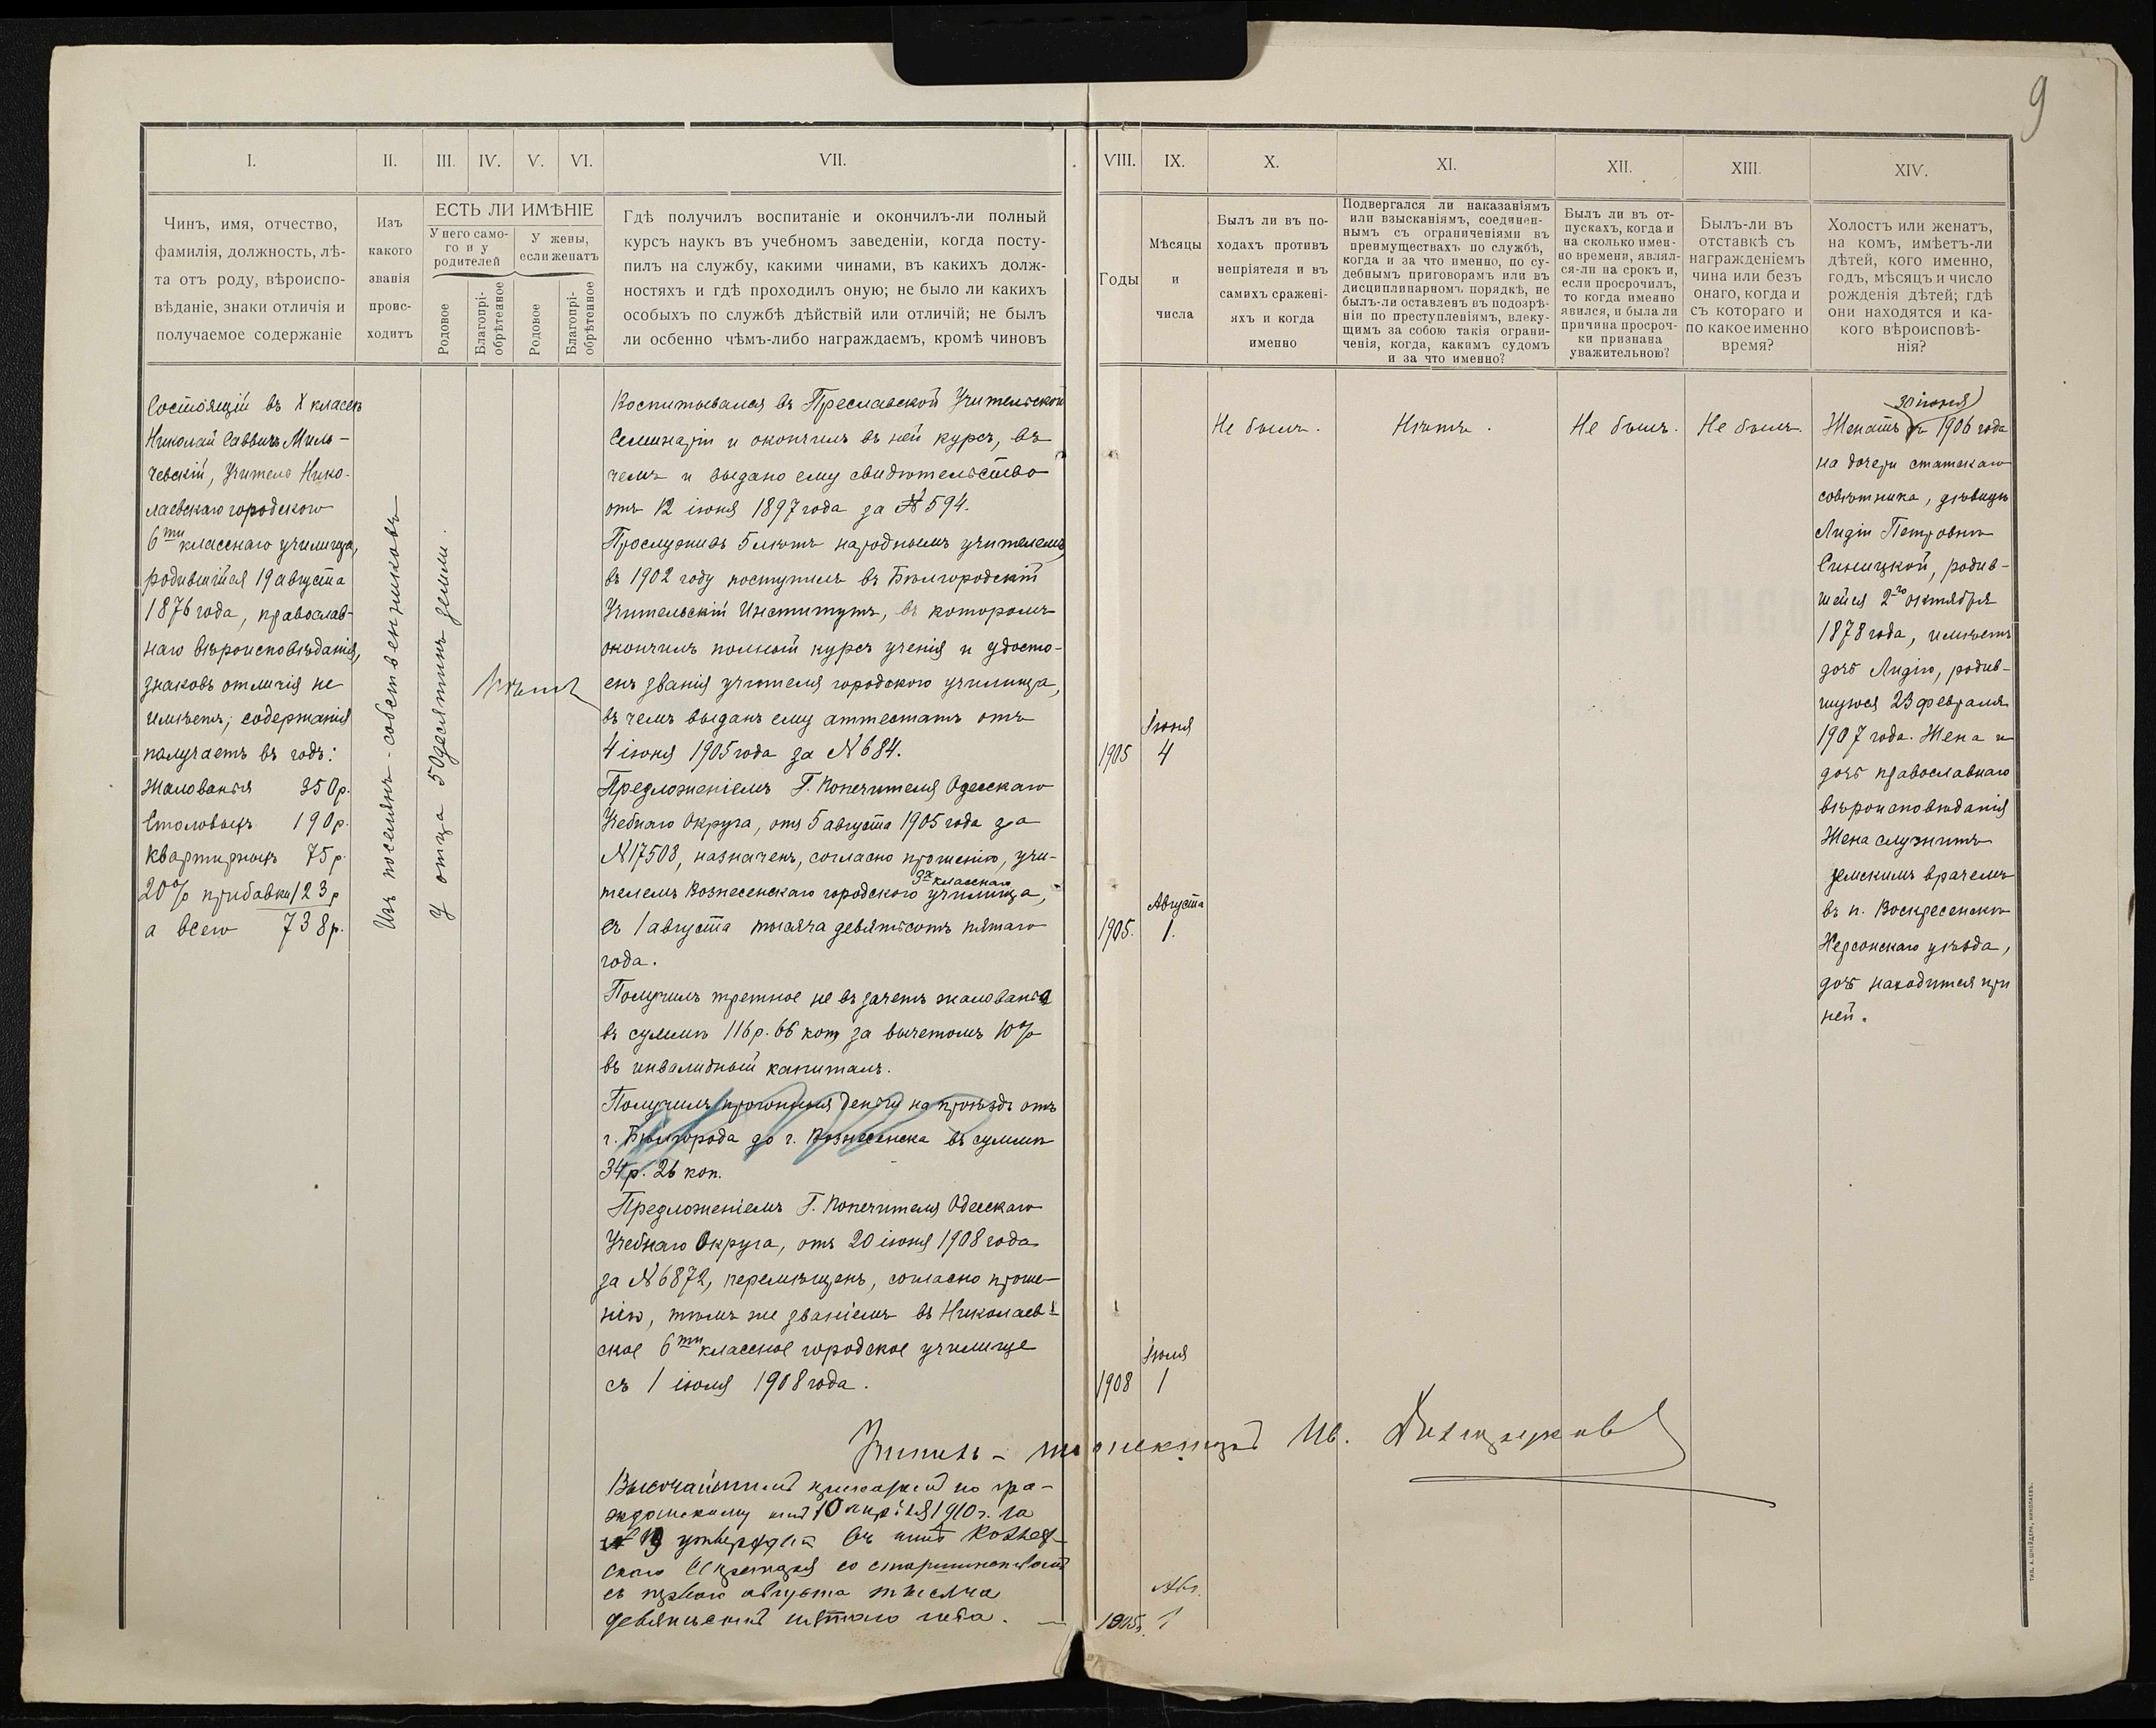 9
I.
II.
III.
IV.
V.
VI.
VII.
VIII.
IX.
X.
XI.
XII.
XIII.
XIV.
Чинъ, имя, отчество,
фамилія, должность, лѣ-
та отъ роду, вѣроиспо-
вѣданіе, знаки отличія и
получаемое содержаніе
Изъ
какого
званія
проис-
ходитъ
ЕСТЬ ЛИ ИМѢНІЕ
У него само-
го и у
родителей
У жены,
если женатъ
Родовое
Благопрі-
обрѣтенное
Родовое
Благопрі-
обрѣтенное
Гдѣ получилъ воспитаніе и окончилъ-ли полный
курсъ наукъ въ учебномъ заведеніи, когда посту-
пилъ на службу, какими чинами, въ какихъ долж-
ностяхъ и гдѣ проходилъ оную; не было ли какихъ
особыхъ по службѣ дѣйствій или отличій; не былъ
ли осбенно чѣмъ-либо награждаемъ, кромѣ чиновъ
Годы
Мѣсяцы
и
числа
Былъ ли въ по-
ходахъ противъ
непріятеля и въ
самихъ сражені-
яхъ и когда
именно
Подвергался ли наказаніямъ
или взысканіямъ, соединен-
нымъ съ ограниченіями въ
преимуществахъ по службѣ,
когда и за что именно, по су-
дебнымъ приговорамъ или въ
дисциплинарномъ порядкѣ, не
былъ-ли оставленъ въ подозрѣ-
ніи по преступленіямъ, влеку-
щимъ за собою такія ограни-
ченія, когда, какимъ судомъ
и за что именно?
Былъ ли въ от-
пускахъ, когда и
на сколько имен-
но времени, являл-
ся-ли на срокъ и,
если просрочилъ,
то когда именно
явился, и была ли
причина просроч-
ки признана
уважительною?
Былъ-ли въ
отставкѣ съ
награжденіемъ
чина или безъ
онаго, когда и
съ котораго и
по какое именно
время?
Холостъ или женатъ,
на комъ, имѣетъ-ли
дѣтей, кого именно,
годъ, мѣсяцъ и число
рожденія дѣтей; гдѣ
они находятся и ка-
кого вѣроисповѣ-
нія?
Состоящій въ X классѣ
Николай Саввичъ Миль-
чевскій, Учитель Нико-
лаевскаго городского
6ти класснаго училища,
родившійся 19 августа
1876 года, православ-
наго вѣроисповѣданія,
знаковъ отличія не
имѣетъ; содержанія
получаетъ въ годъ:
Жалованья 350 р.
Столовыхъ 190 р.
Квартирныхъ 75 р.
20% прибавки 123 р
а всего 738 р.
Изъ поселянъ-собственниковъ
У отца 50 десятинъ земли.
Нѣтъ
Воспитывался въ Преславской Учительской
Семинаріи и окончилъ въ ней курсъ, въ
чемъ и выдано ему свидѣтельство
отъ 12 іюня 1897 года за № 594.
Прослуживъ 5 лѣтъ народнымъ учителемъ,
въ 1902 году поступилъ въ Бѣлгородскій
Учительскій Институтъ, въ которомъ
окончилъ полный курсъ ученія и удосто-
енъ званія учителя городского училища,
въ чемъ выданъ ему аттестатъ отъ
4 іюня 1905 года за № 684.
Предложеніемъ Г. Попечителя Одесскаго
Учебнаго Округа, отъ 5 августа 1905 года за
№ 17508, назначенъ, согласно прошенію, учи-
3х класснаго
телемъ Вознесенскаго городского училища,
съ 1 августа тысяча девятьсотъ пятаго
года.
Получилъ третное не въ зачетъ жалованье
въ суммѣ 116 р. 66 коп за вычетомъ 10%
въ инвалидный капиталъ.
Получилъ прогонныя деньги на проѣздъ отъ
г. Бѣлгорода до г. Вознесенска въ суммѣ
34 р. 26 коп.
Предложеніемъ Г. Попечителя Одесскаго
Учебнаго Округа, отъ 20 іюня 1908 года
за № 6872, перемѣщенъ, согласно проше-
нію, тѣмъ же званіемъ въ Николаев-
ское 6ти классное городское училище
съ 1 іюля 1908 года.
Іюня
1905 4
Августа
1905. 1.
Іюля
1908 1
Не былъ.
Нѣтъ.
Не былъ.
Не былъ.
30 іюня
Женатъ съ 1906 года
на дочери статскаго
совѣтника, дѣвицѣ
Лидіи Петровнѣ
Синицкой, родив-
шейся 2го октября
1878 года, имѣетъ
дочь Лидію, родив-
шуюся 23 февраля
1907 года. Жена и
дочь православнаго
вѣроисповѣданія
Жена служитъ
земскимъ врачемъ
въ п. Воскресенскѣ
Херсонскаго уѣзда,
дочь находится при
ней.
инспекторъ Ив.
Высочайшимъ приказомъ по гра-
жданскому 10 апрѣля 1910 г. за
№ утвержденъ въ чинѣ Коллеж-
скаго Секретаря со старшинствомъ
съ перваго августа тысяча
девятьсотъ пятаго года.
Авг.
1905. 1
ТИП. А. ШНЕЙДЕРА, НИКОЛАЕВЪ.